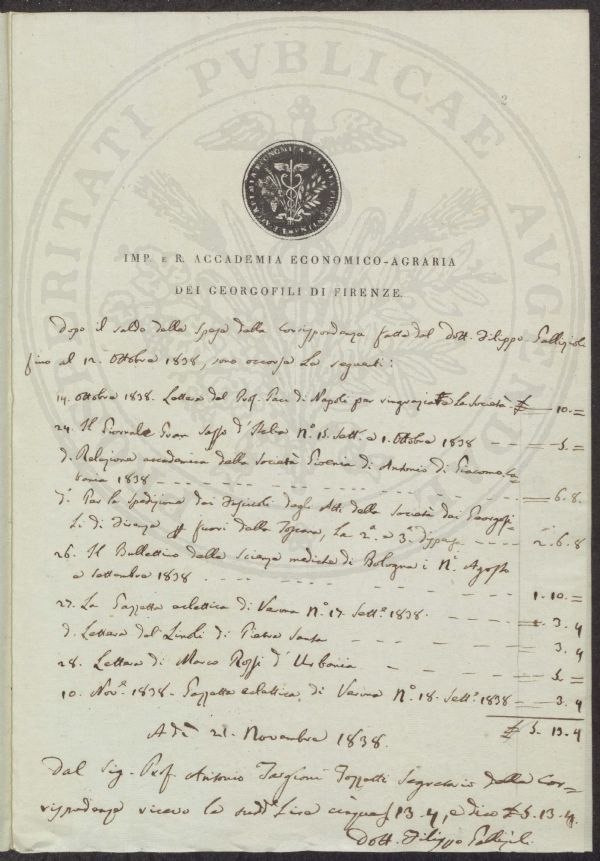 PROSPERITATI PVBLICAE AVGENDAE
2
IMP. E R. ACCADEMIA ECONOMICO-AGRARIA
DEI GEORGOFILI DI FIRENZE.
Dopo il saldo delle spese della corrispondenza fatta dal Dott. Filippo Gallizioli
fino al 12. Ottobre 1838, sono occorse le seguenti:
14. Ottobre 1838. Lettera del Prof. Paci di Napoli per ringraziare la Società £ — 10. =
24. Il Giornale Gran Sasso d'Italia N.º 15. Sett. a 1. Ottobre 1838 — 5. =
d. Relazione accademica della Società Gioenia di Antonio di Giacomo, Ca-
tania 1838 — 6. 8.
d.º Per la spedizione dei Fascicoli degli Atti della Società dei Georgofi-
li di Firenze fuori della Toscana, la 2.ª e 3.ª dispensa 2. 6. 8
26. Il Bullettino delle Scienze mediche di Bologna i N.i Agosto
e settembre 1838. 1. 10. =
27. La Gazzetta eclettica di Verona N.º 17. Sett.e 1838. — 3. 4
d. Lettera del Linoli di Pietra Santa 3. 4
28. Lettera di Marco Rossi d'Urbania — 5. =
10. Nov.e 1838 - Gazzetta eclettica, di Verona N.º 18. Sett.e 1838 — 3. 4
£ 5. 13. 4
Adì 21. Novembre 1838.
Dal Sig. Prof. Antonio Targioni Tozzetti Segretario delle Cor-
rispondenze ricevo le sudd.e Lire cinque, 13. 4, e dico £ 5. 13. 4.
Dott. Filippo Gallizioli